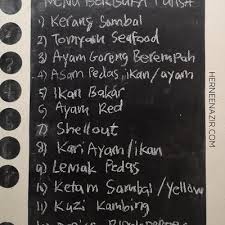 MENU BERBUKA PUASA
1) Kerang Sambal
2) Tomyam Seafood
3) Ayam Goreng Berempah
4) Asam Pedas ikan/ayam
5) Ikan Bakar
6) Ayam Red
7) Shellout
8) Kari Ayam/ikan
9) Lemak Pedas
10) Ketam Sambal/Yellow
11) Kuzi Kambing
HERNEENAZIR.COM